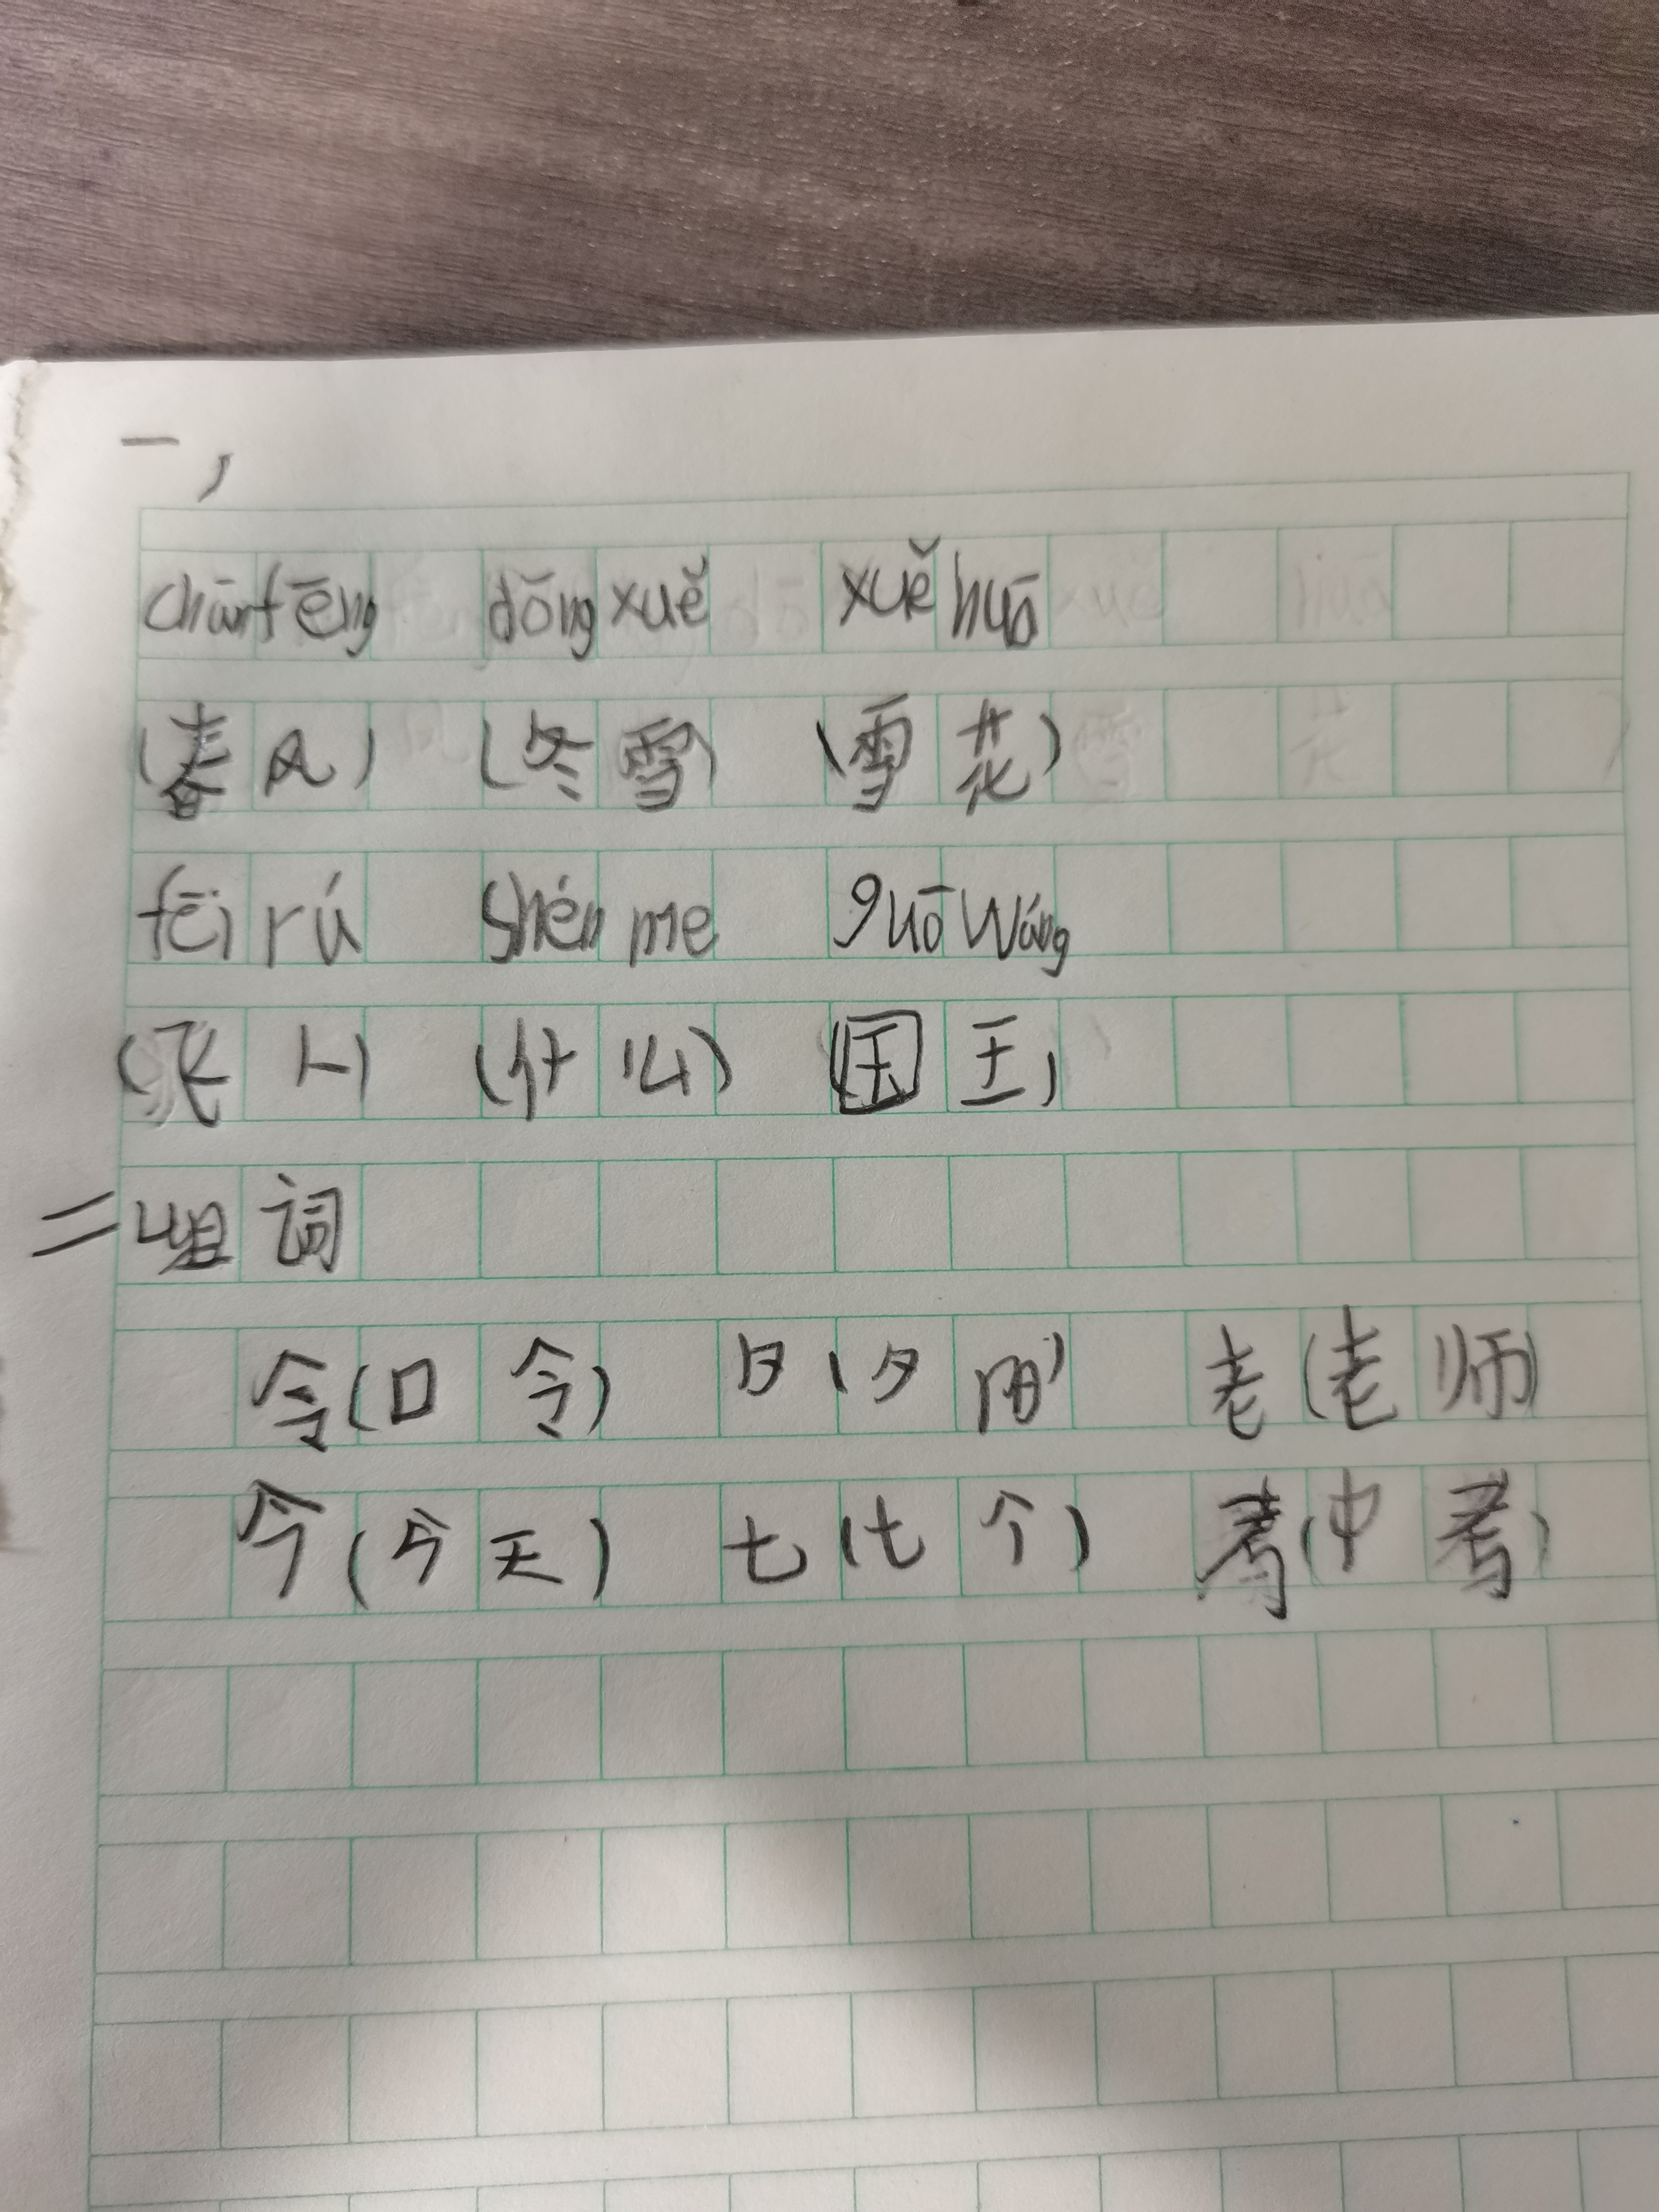 一,
chūnfēng dōng xuě xuě huā
(春风) (冬雪) (雪花)
fēi rú shén me guō wáng
(飞入) (什么) (国王)
二组词
令(口令) 夕(夕阳) 老(老师)
今(今天) 七(七个) 考(中考)